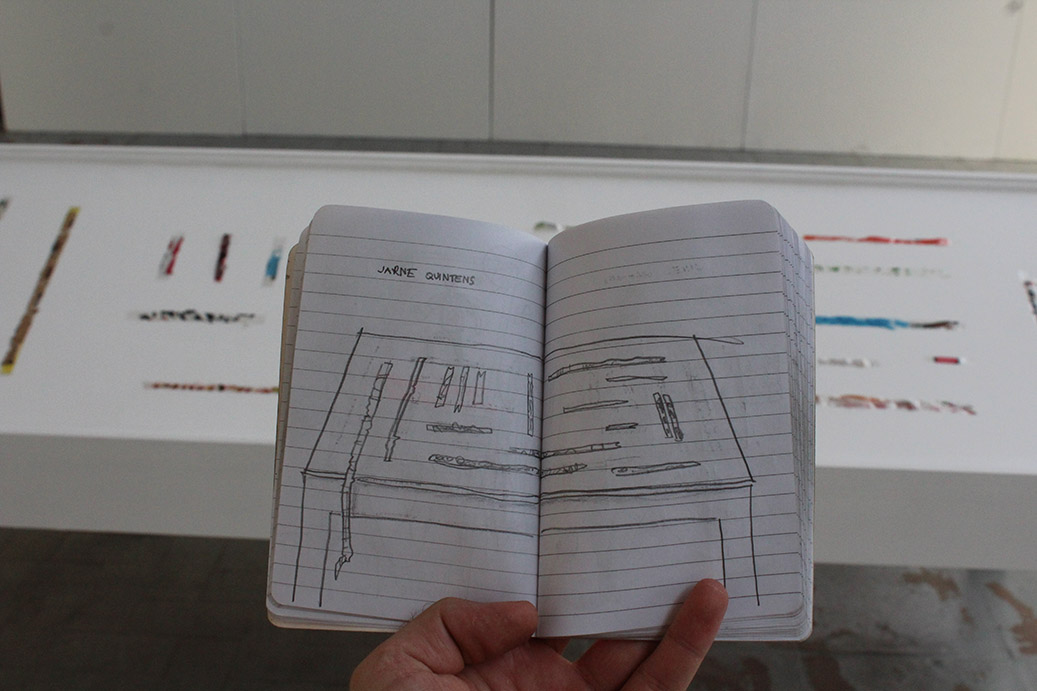 JARNE QUINTENS